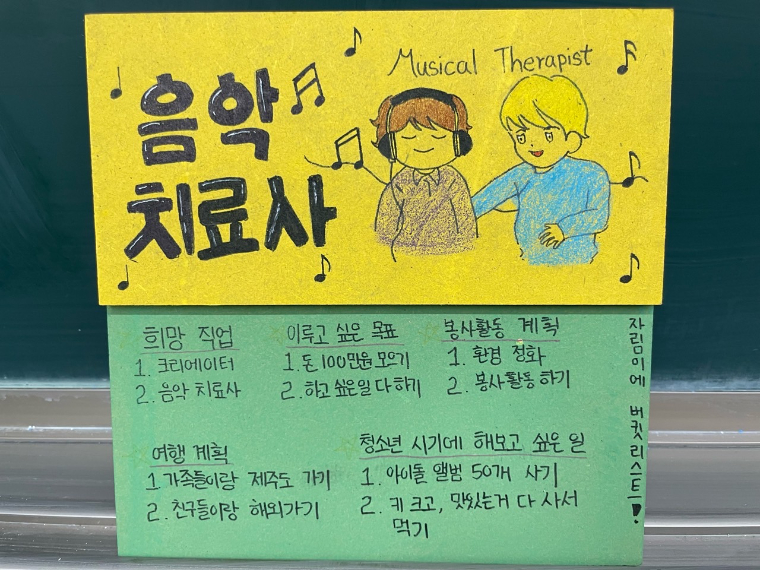 Musical Therapist
음악
치료사
희망 직업
1. 크리에이터
2. 음악 치료사
이루고 싶은 목표
1. 돈 100만원 모으기
2. 하고 싶은일 다 하기
봉사활동 계획
1. 환경 정화
2. 봉사활동하기
여행 계획
1 가족들이랑 제주도 가기
2. 친구들이랑 해외가기
청소년 시기에 해보고 싶은 일
1. 아이돌 앨범 50개 사기
2. 키 크고, 맛있는거 다 사서
먹기
자림이에 버킷리스트!